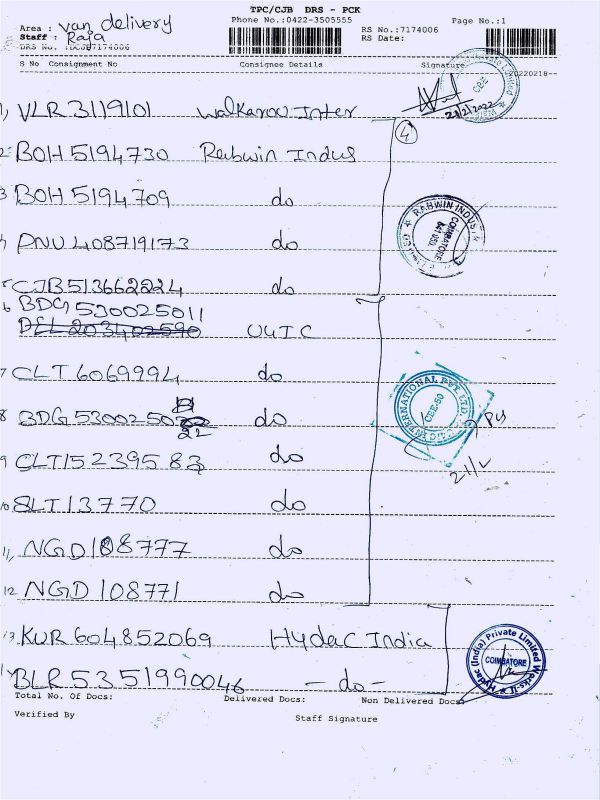 TPC/CJB DRS - PCK
Area : van delivery
Phone No.:0422-3505555
Page No.:1
Staff : Raja
RS No.:7174006
DRS No. :DCJB7174006
RS Date:
S No Consignment No Consignee Details Signature
20220218-
1, VLR 3119101 Walkaroo Inter
21/2/2022
4
2 BOH 5194730 Rabwin Indus
3 BOH 5194709 do
RABWIN INDUS
COIMBATORE
641 021
PNU 408719173 do
CJB 513662224 do
6 BDG 530025011
DEL 203402590 UGIC
7 CLT 6069994 do
INTERNATIONAL PVT. LTD.
CBE-50
8 BDG 5300250 do
22
9 CLT 152395 83 do
21/2
10 SLT 13770 do
11, NGD 108777 do
12 NGD 108771 do
13 KUR 604852069 Hydac India
Hydac (India) Private Limited Works-II
COIMBATORE
BLR 5351990046 - do -
Total No. Of Docs: Delivered Docs: Non Delivered Docs:
Verified By Staff Signature